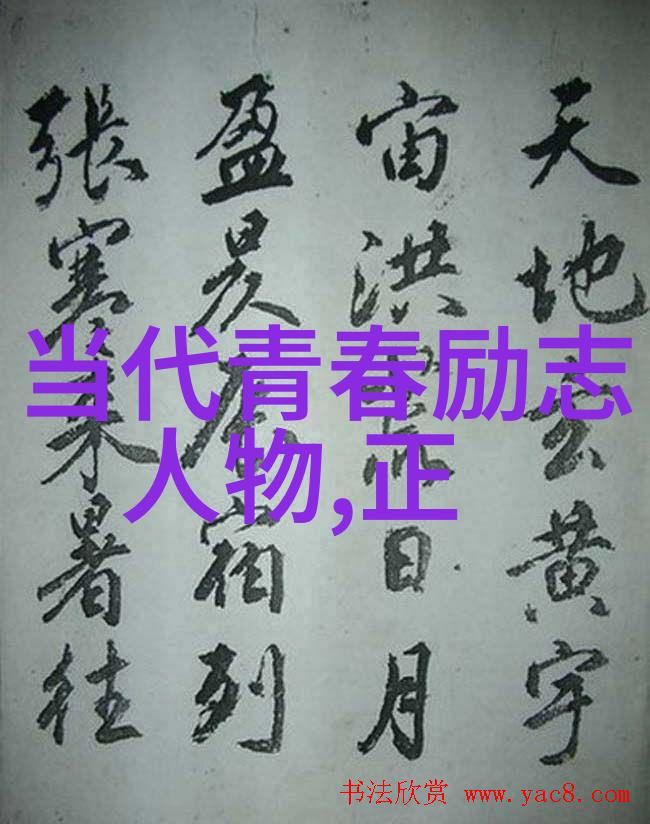 天地玄黄宇
宙洪荒日月
盈昃辰宿列
張寒来暑往
当代青春励志
人物,正
书法欣赏 www.yac8.com